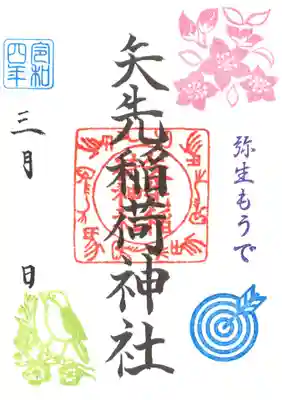 弥生もうで
矢先稲荷神社
令和
四年
三月 日